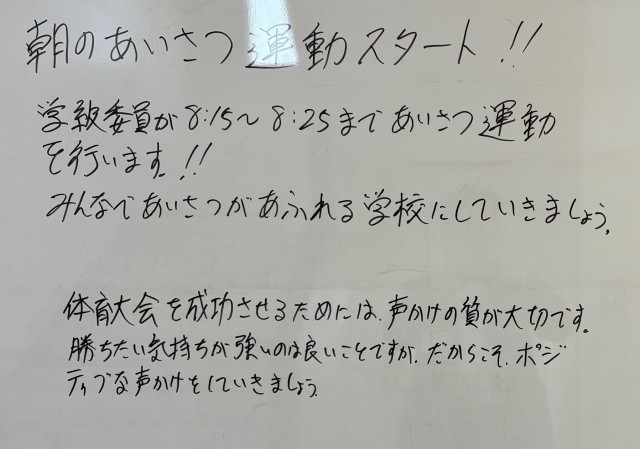 朝のあいさつ運動スタート!!
学級委員が8:15〜8:25まであいさつ運動
を行います。!!
みんなであいさつがあふれる学校にしていきましょう。
体育大会を成功させるためには、声かけの質が大切です。
勝ちたい気持ちが強いのは良いことですが、だからこそ、ポジ
ティブな声かけをしていきましょう。